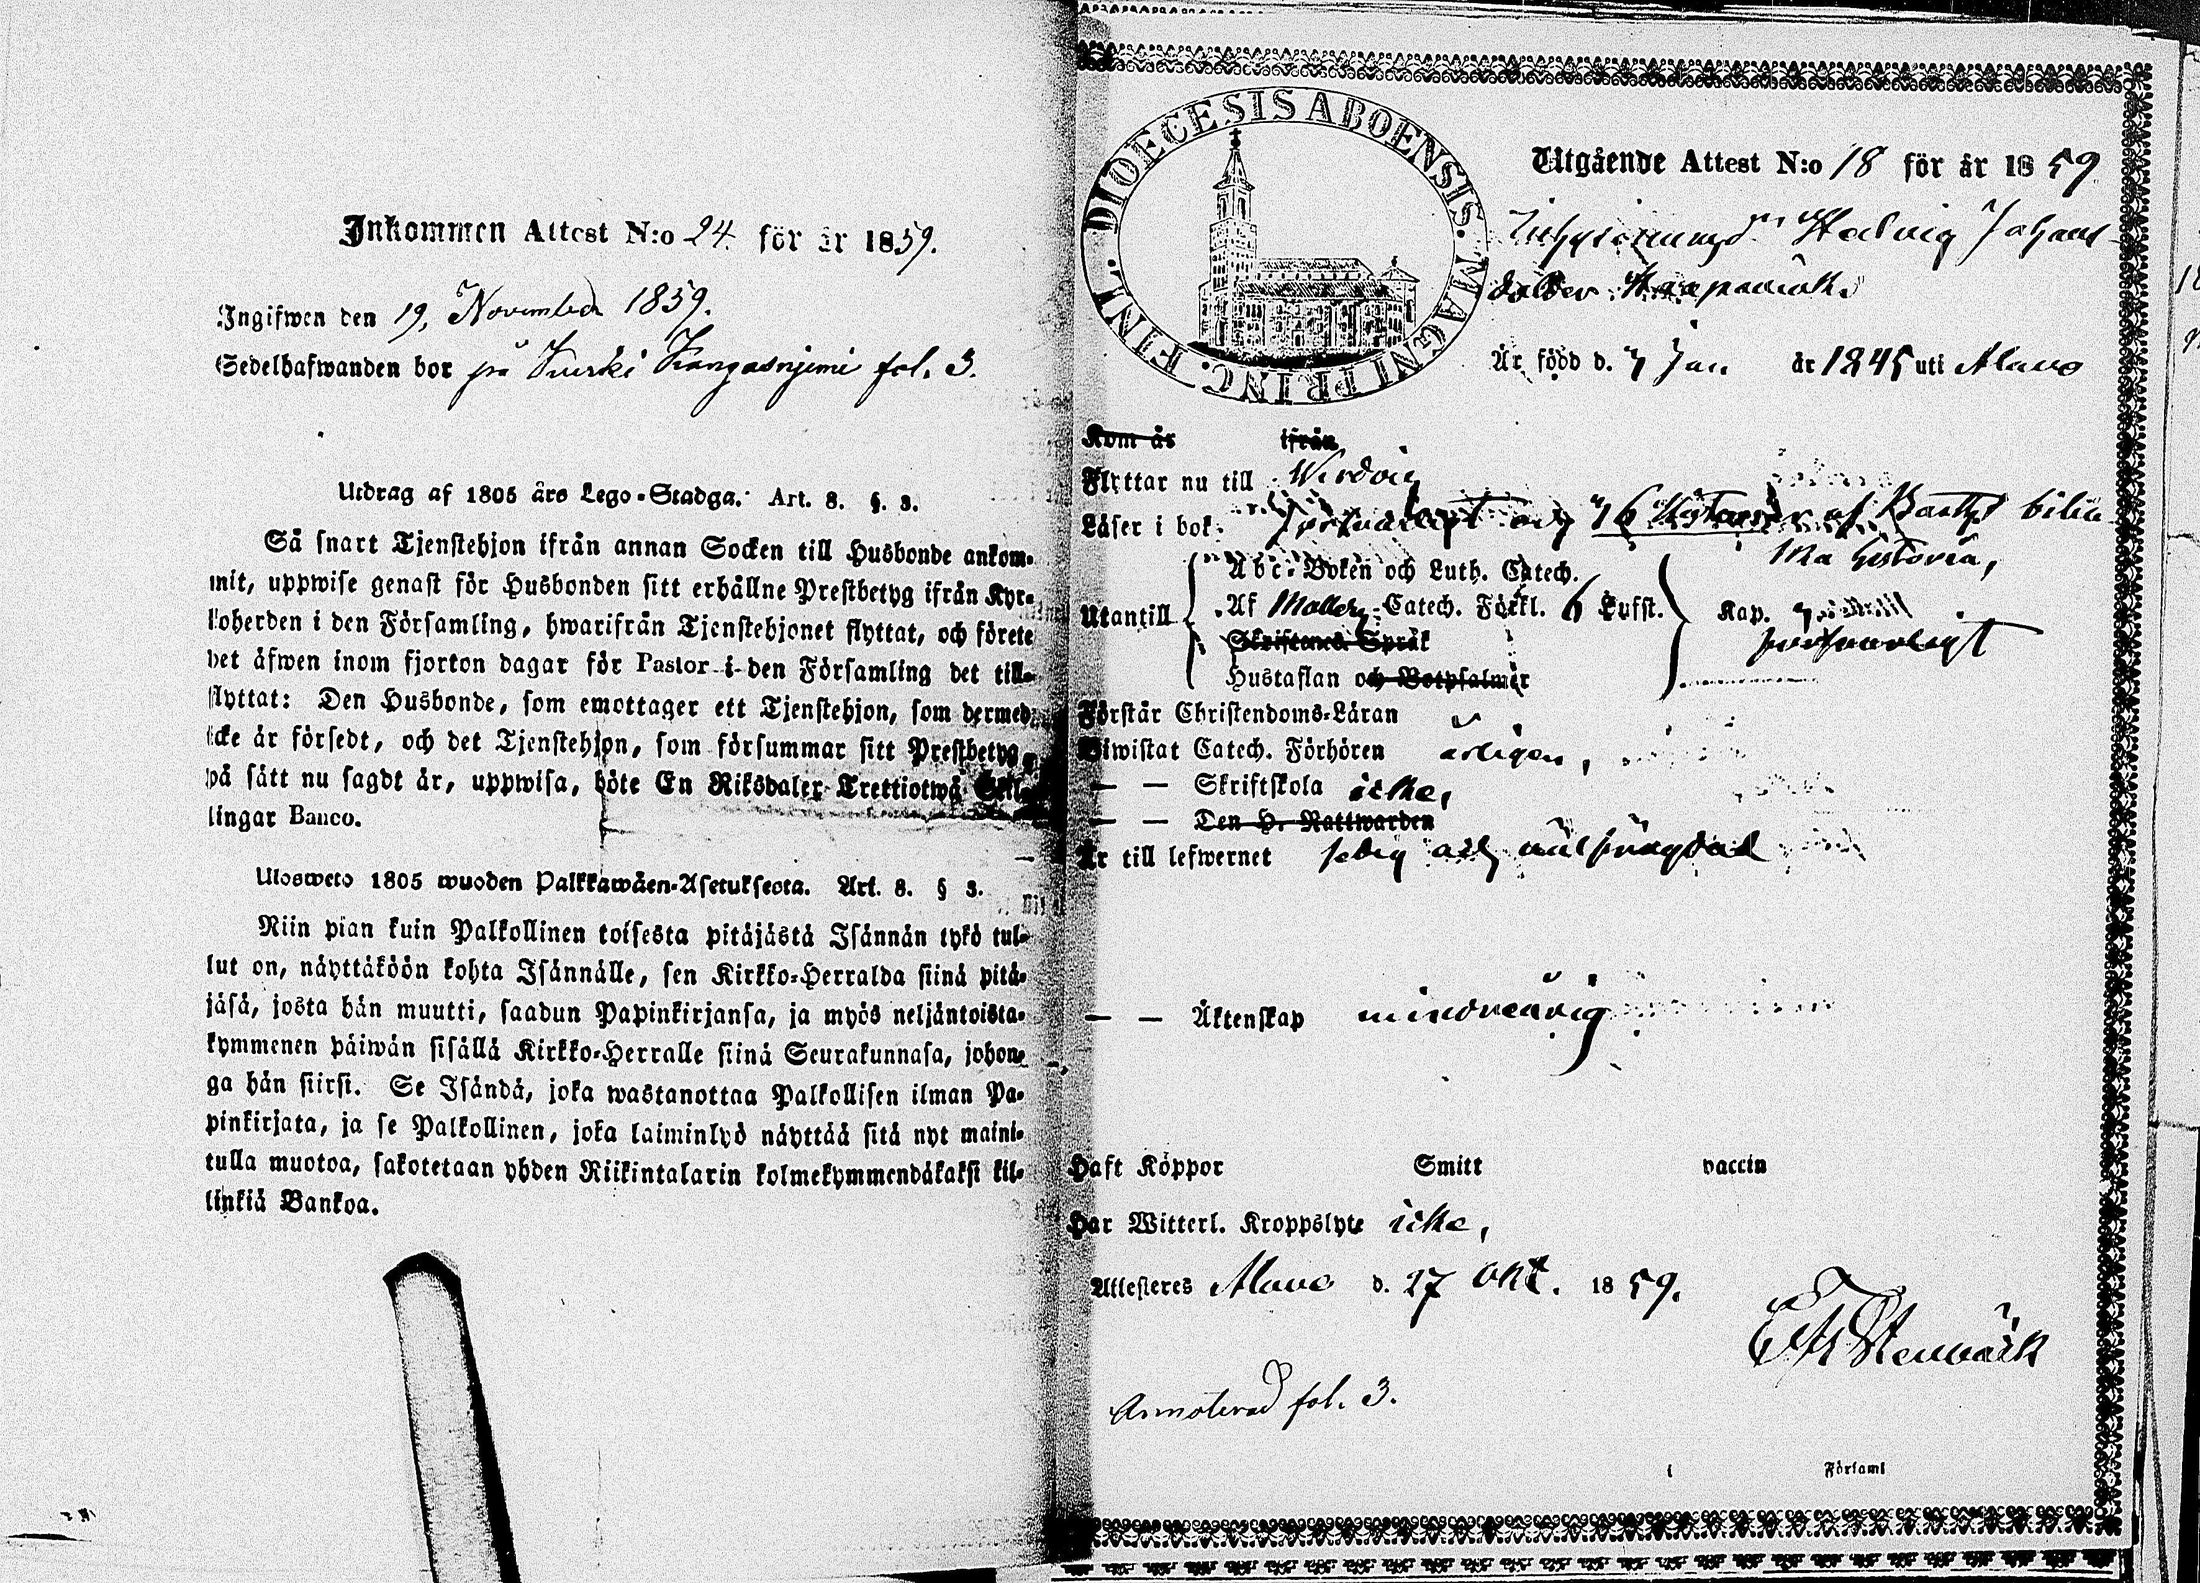 Inkommen Attest N:o 24. för år 1859.
Ingifwen den 19, November 1859.
Sedelhafwanden bor på Kangasnjemi fol. 3.
Utdrag af 1805 års Lego-Stadga. Art. 8. §. 3.
Så snart Tjenstehjon ifrån annan Socken till Husbonde ankom-
mit, uppwise genast för Husbonden sitt erhållne Prestbetyg ifrån Kyr-
koherden i den Församling, hwarifrån Tjenstehjonet flyttat, och förete
det åfwen inom fjorton dagar för Pastor i den Församling det till-
flyttat: Den Husbonde, som emottager ett Tjenstehjon, som dermed
icke är försedt, och det Tjenstehjon, som försummar sitt Prestbetyg
på sått nu sagdt år, uppwisa, böte En Riksdaler Trettiotwå Skil-
lingar Banco.
Ulosweto 1805 wuoden Palkkawäen-Asetuksesta. Art. 8. § 3.
Niin pian kuin Palkollinen toisesta pitäjästä Isännän tykö tul-
lut on, näyttäköön kohta Isännälle, sen Kirkko-Herralda siinä pitä-
jäsä, josta hän muutti, saadun Papinkirjansa, ja myös neljäntoista-
kymmenen päiwän sisällä Kirkko-Herralle siinä Seurakunnasa, johon-
ga hän siirsi. Se Isändä, joka wastanottaa Palkollisen ilman Pa-
pinkirjata, ja se Palkollinen, joka laiminlyö näyttää sitä nyt maini-
tulla muotoa, sakotetaan yhden Riikintalarin kolmekymmendäkaksi kil-
linkiä Bankoa.
DIOECESIS ABOENSIS. MAGNI PRINC. FINL.
Utgående Attest N:o 18 för år 1859
Hedvig Johans
dotter
Är född d. 7 Jan år 1845 uti Alavo
Kom år ifrån
Flyttar nu till Wirdois
Läser i bok försvarligt och af Barths bibli
ska historia,
Utantill
Abc-Boken och Luth. Catech.
Af Catech. Förkl. 6 Lufst. Kap.
Skriftenes Språk försvarligt
Hustaflan och Botpsalmer
Förstår Christendoms-Läran
Biwistat Catech. Förhören årligen,
— — Skriftskola icke,
— — Den H. Nattwarden
Är till lefwernet sedig och välfrägdad
— — Äktenskap minderårig
Haft Koppor Smitt vaccin
Har Witterl. Kroppslyte icke,
Attesteres Alavo d. 27 Okt. 1859.
Annoterad fol. 3.
i Församl